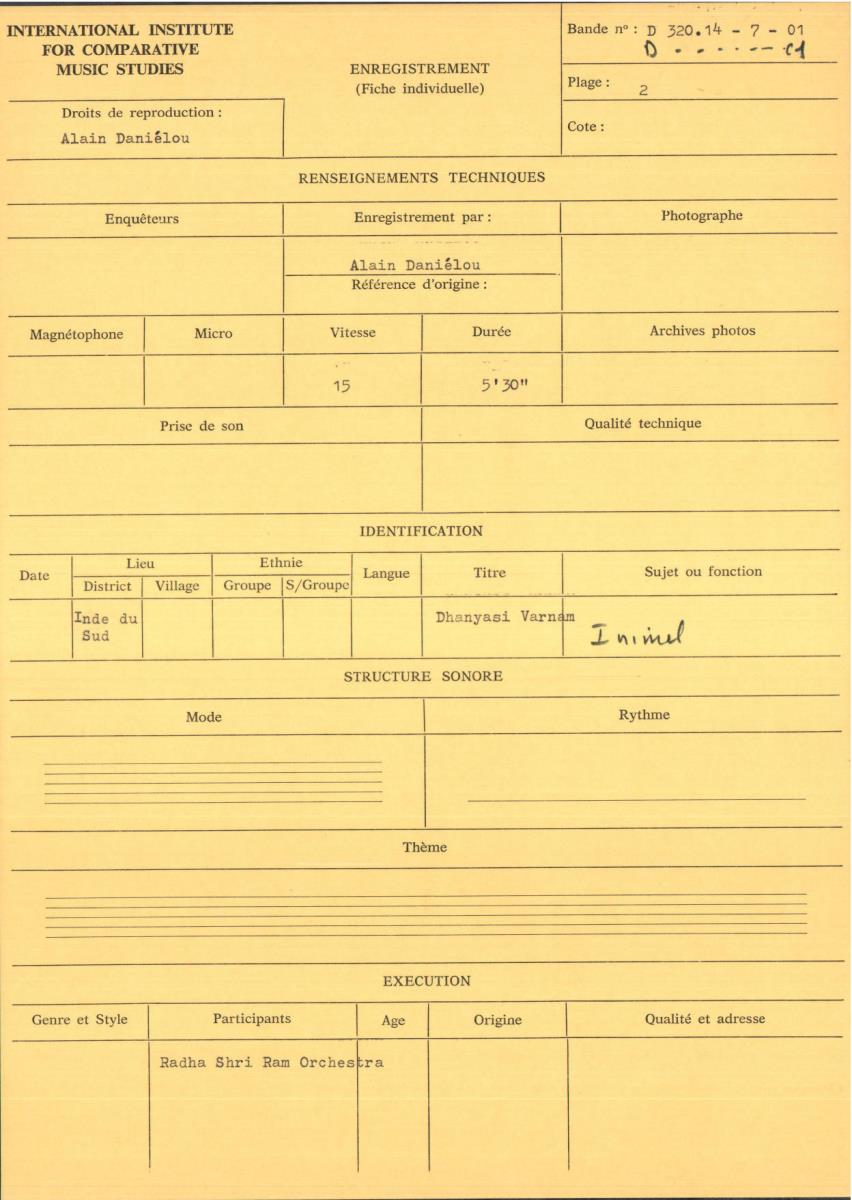 INTERNATIONAL INSTITUTE
FOR COMPARATIVE
MUSIC STUDIES
Droits de reproduction :
Alain Daniélou
ENREGISTREMENT
(Fiche individuelle)
Bande nº : D 320.14 - 7 - 01
Plage : 2
Cote :
RENSEIGNEMENTS TECHNIQUES
Enquêteurs
Enregistrement par :
Photographe
Alain Daniélou
Référence d'origine :
Magnétophone
Micro
Vitesse
Durée
Archives photos
15
5'30"
Prise de son
Qualité technique
IDENTIFICATION
Date
Lieu
Ethnie
Langue
Titre
Sujet ou fonction
District
Village
Groupe
S/Groupe
Inde du
Sud
Dhanyasi Varnam
Inimel
STRUCTURE SONORE
Mode
Rythme
Thème
EXECUTION
Genre et Style
Participants
Age
Origine
Qualité et adresse
Radha Shri Ram Orchestra